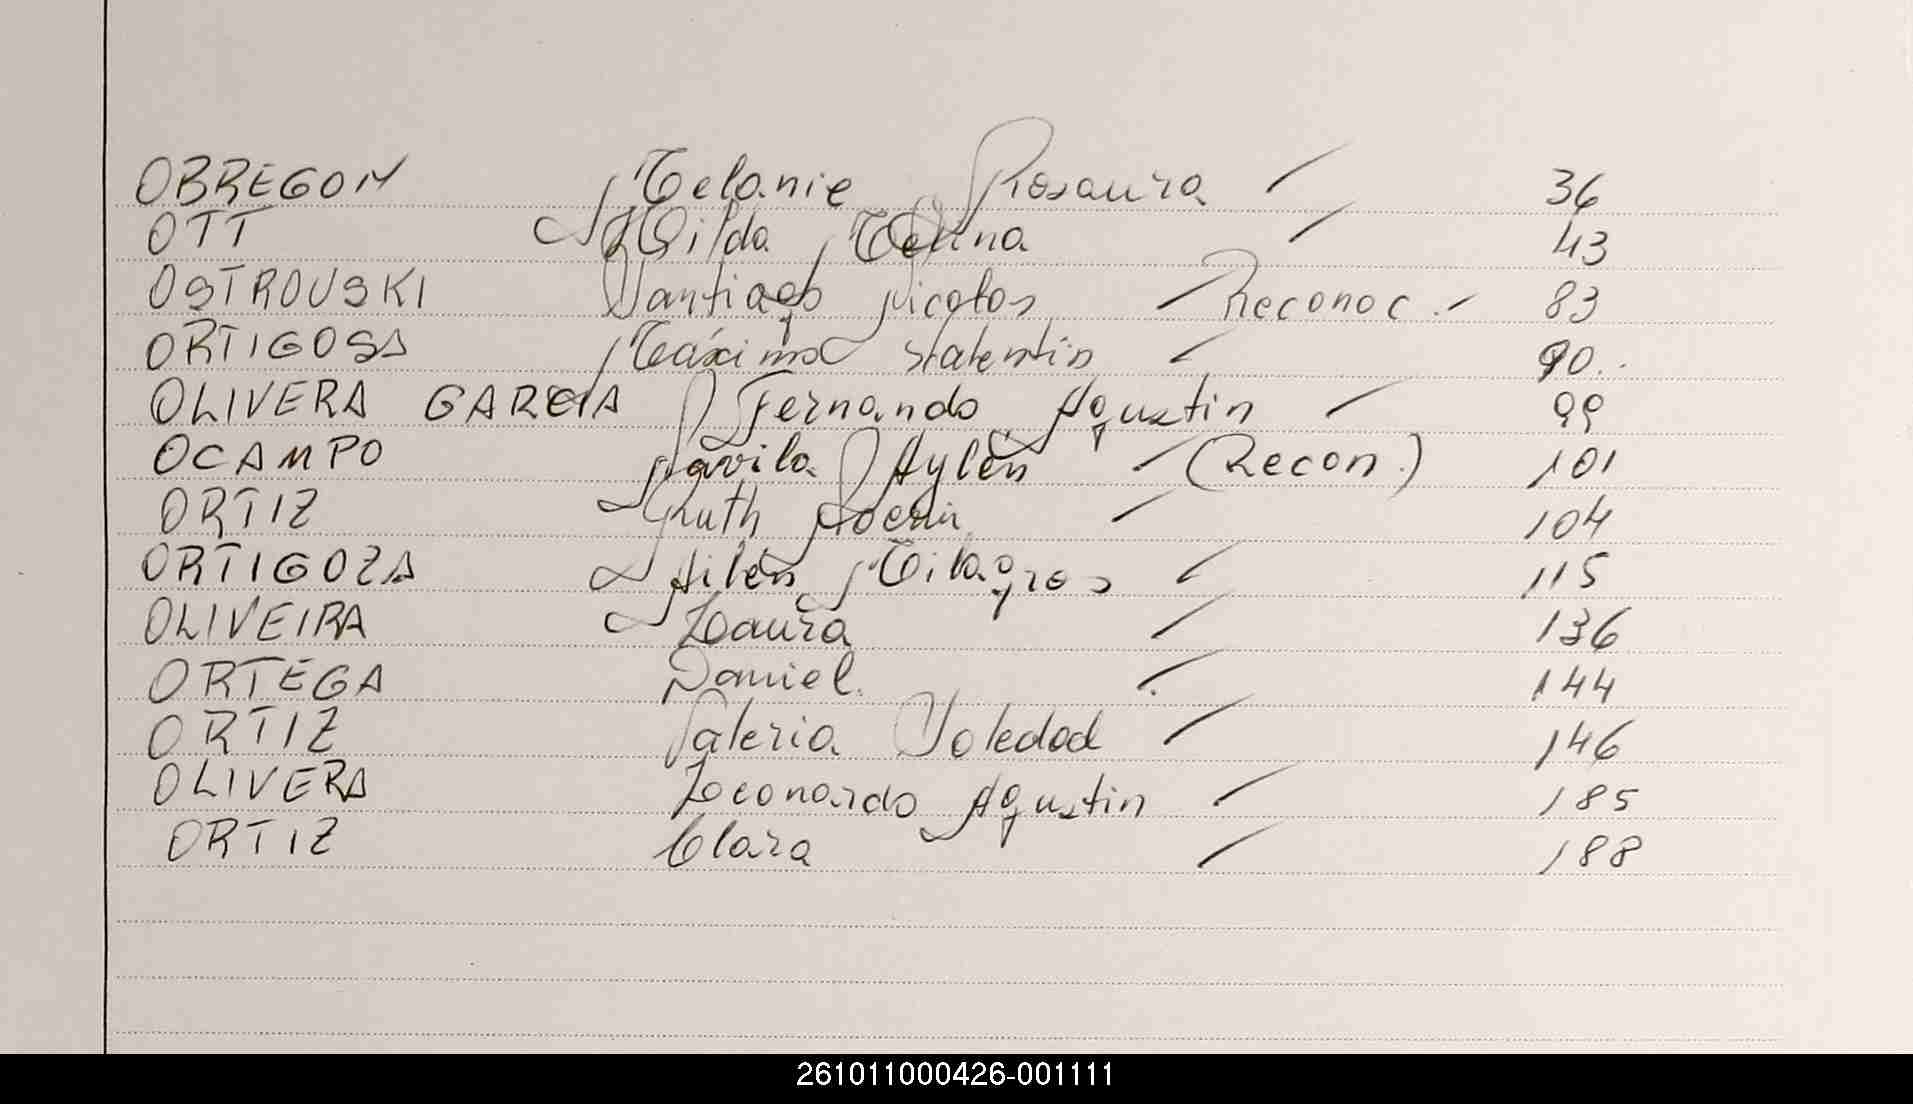 OBREGON Melanie Rosaura / 36
OTT Hilda Melina / 43
OSTROUSKI Santiago Nicolas / Reconoc. / 83
ORTIGOSA Máximo Valentin / 90..
OLIVERA GARCIA Fernando Agustin / 99
OCAMPO Aylén / (Recon.) 101
ORTIZ Ruth Noemi / 104
ORTIGOZA Ailén Milagros / 115
OLIVEIRA Laura / 136
ORTEGA Daniel. / 144
ORTIZ Valeria Soledad / 146
OLIVERA Leonardo Agustin / 185
ORTIZ Clara / 188
261011000426-001111